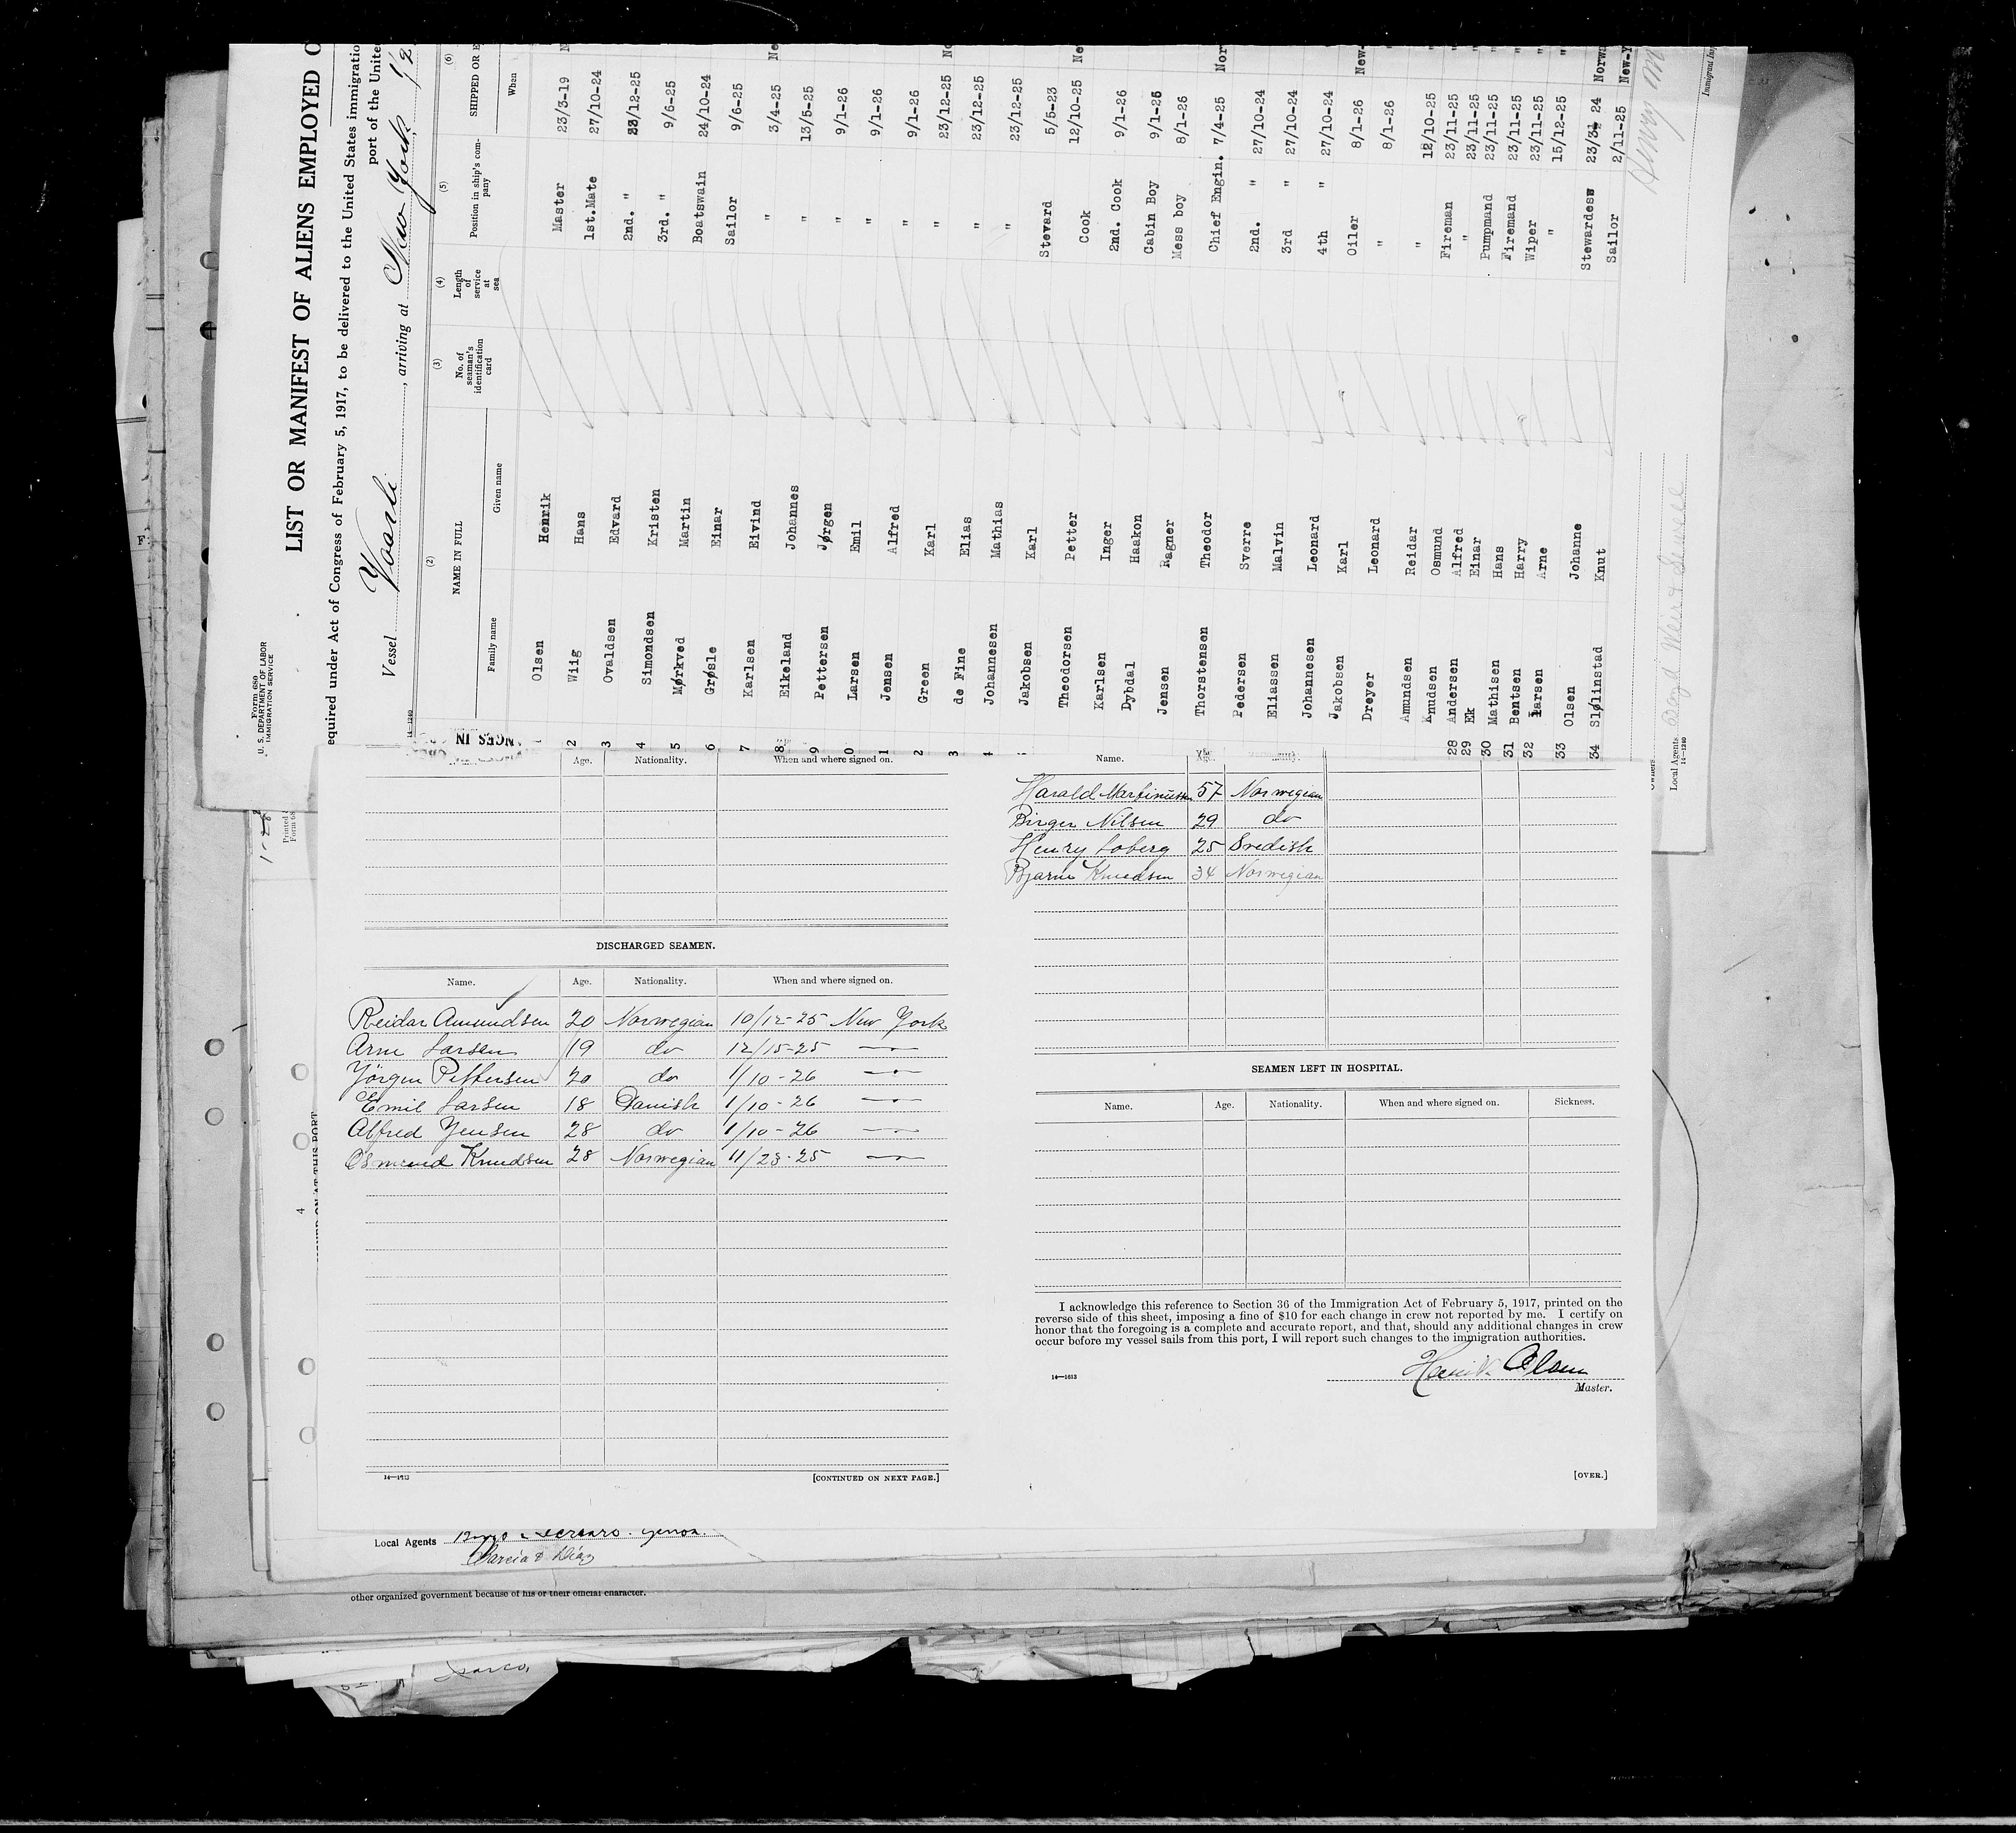 Form 680
U. S. DEPARTMENT OF LABOR
IMMIGRATION SERVICE
LIST OR MANIFEST OF ALIENS EMPLOYED O
equired under Act of Congress of February 5, 1917, to be delivered to the United States immigratio
port of the Unite
Vessel Vaarli, arriving at New York 1/2
14—1240
(2) (3) (4) (5) (6)
NAME IN FULL No. of seaman's identification card Length of service at sea Position in ship's company SHIPPED OR E
Family name Given name When
Olsen Henrik Master 23/3-19 N
2 Wiig Hans 1st.Mate 27/10-24
3 Ovaldsen Edvard 2nd. " 28/12-25
4 Simondsen Kristen 3rd. " 9/6-25
5 Mørkved Martin Boatswain 24/10-24
6 Grøsle Einar Sailor 9/6-25
7 Karlsen Eivind " 3/4-25 Ne
8 Eikeland Johannes " 13/5-25
9 Pettersen Jørgen " 9/1-26
0 Larsen Emil " 9/1-26
1 Jensen Alfred " 9/1-26
2 Green Karl " 23/12-25 No
3 de Fine Elias " 23/12-25
4 Johannesen Mathias " 23/12-25
Jakobsen Karl Stevard 5/5-23
Theodorsen Petter Cook 12/10-25 Ne
Karlsen Inger 2nd. Cook 9/1-26
Dybdal Haakon Cabin Boy 9/1-26
Jensen Ragner Mess boy 8/1-26
Thorstensen Theodor Chief Engin. 7/4-25 Nor
Pedersen Sverre 2nd. " 27/10-24
Eliassen Malvin 3rd " 27/10-24
Johannesen Leonard 4th " 27/10-24
Jakobsen Karl Oiler 8/1-26 New-
Dreyer Leonard " 8/1-26 "
Amundsen Reidar " 12/10-25 "
Knudsen Osmund Fireman 23/11-25 "
28 Andersen Alfred " 23/11-25 "
29 Ek Einar Pumpmand 23/11-25 "
30 Mathisen Hans Firemand 23/11-25 "
31 Bentsen Harry Wiper 23/11-25 "
32 Larsen Arne " 15/12-25 "
33 Olsen Johanne Stewardess 23/3 24 Norwa
34 Slølinstad Knut Sailor 2/11-25 New-Y
Owners
Local Agents Boyd Weir & Sewell
14—1240
Immigrant Insp
Name. Age. Nationality. When and where signed on.
DISCHARGED SEAMEN.
Name. Age. Nationality. When and where signed on.
Reidar Amundsen 20 Norwegian 10/12-25 New York
Arne Larsen 19 do 12/15-25 —"—
Jörgen Pettersen 20 do 1/10-26 —"—
Emil Larsen 18 Danish 1/10-26 —"—
Alfred Jensen 28 do 1/10-26 —"—
Osmund Knudsen 28 Norwegian 11/23-25 —"—
14—1613
[CONTINUED ON NEXT PAGE.]
Name. Age.
Harald Martinussen 57 Norwegian
Birger Nilsen 29 do
Henry Loberg 25 Svedish
Bjarne Knudsen 34 Norwegian
SEAMEN LEFT IN HOSPITAL.
Name. Age. Nationality. When and where signed on. Sickness.
I acknowledge this reference to Section 36 of the Immigration Act of February 5, 1917, printed on the
reverse side of this sheet, imposing a fine of $10 for each change in crew not reported by me. I certify on
honor that the foregoing is a complete and accurate report, and that, should any additional changes in crew
occur before my vessel sails from this port, I will report such changes to the immigration authorities.
Henrik Olsen
14—1613
Master.
[OVER.]
Local Agents
Garcia & Diaz
other organized government because of his or their official character.